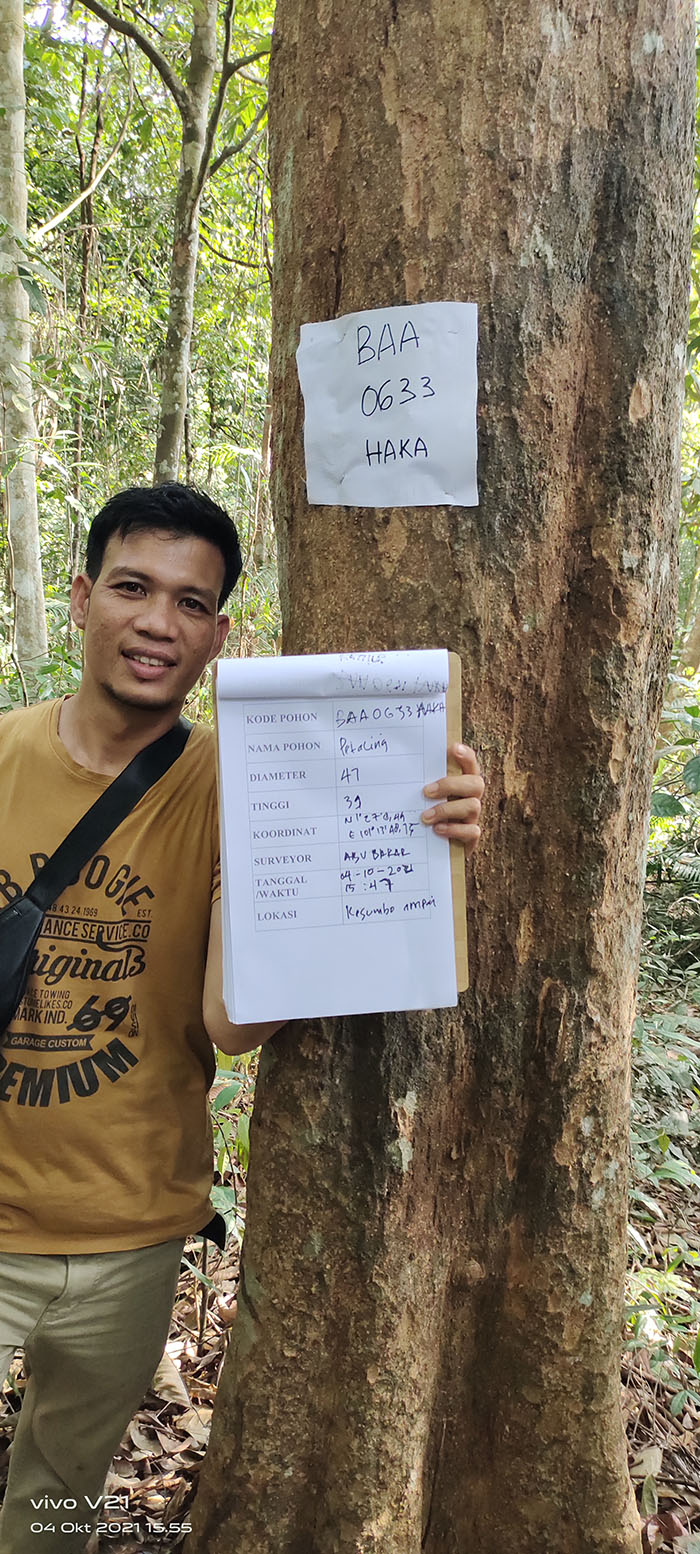 BAA
0633
HAKA
KODE POHON BAA 0633 HAKA
NAMA POHON Petaling
DIAMETER 47
TINGGI 39
KOORDINAT N 1° 27' 0,49
E 101° 13' 48,75
SURVEYOR ABU BAKAR
TANGGAL 04-10-2021
/WAKTU 15:47
LOKASI Kesumbo ampai
B BOOGIE
48 43 24.1969 EST.
ANCE SERVICE.CO
riginal
TOWING
LIKES.CO
MARK IND. 69
GARAGE CUSTOM
REMIUM
vivo V21
04 Okt 2021 15.55